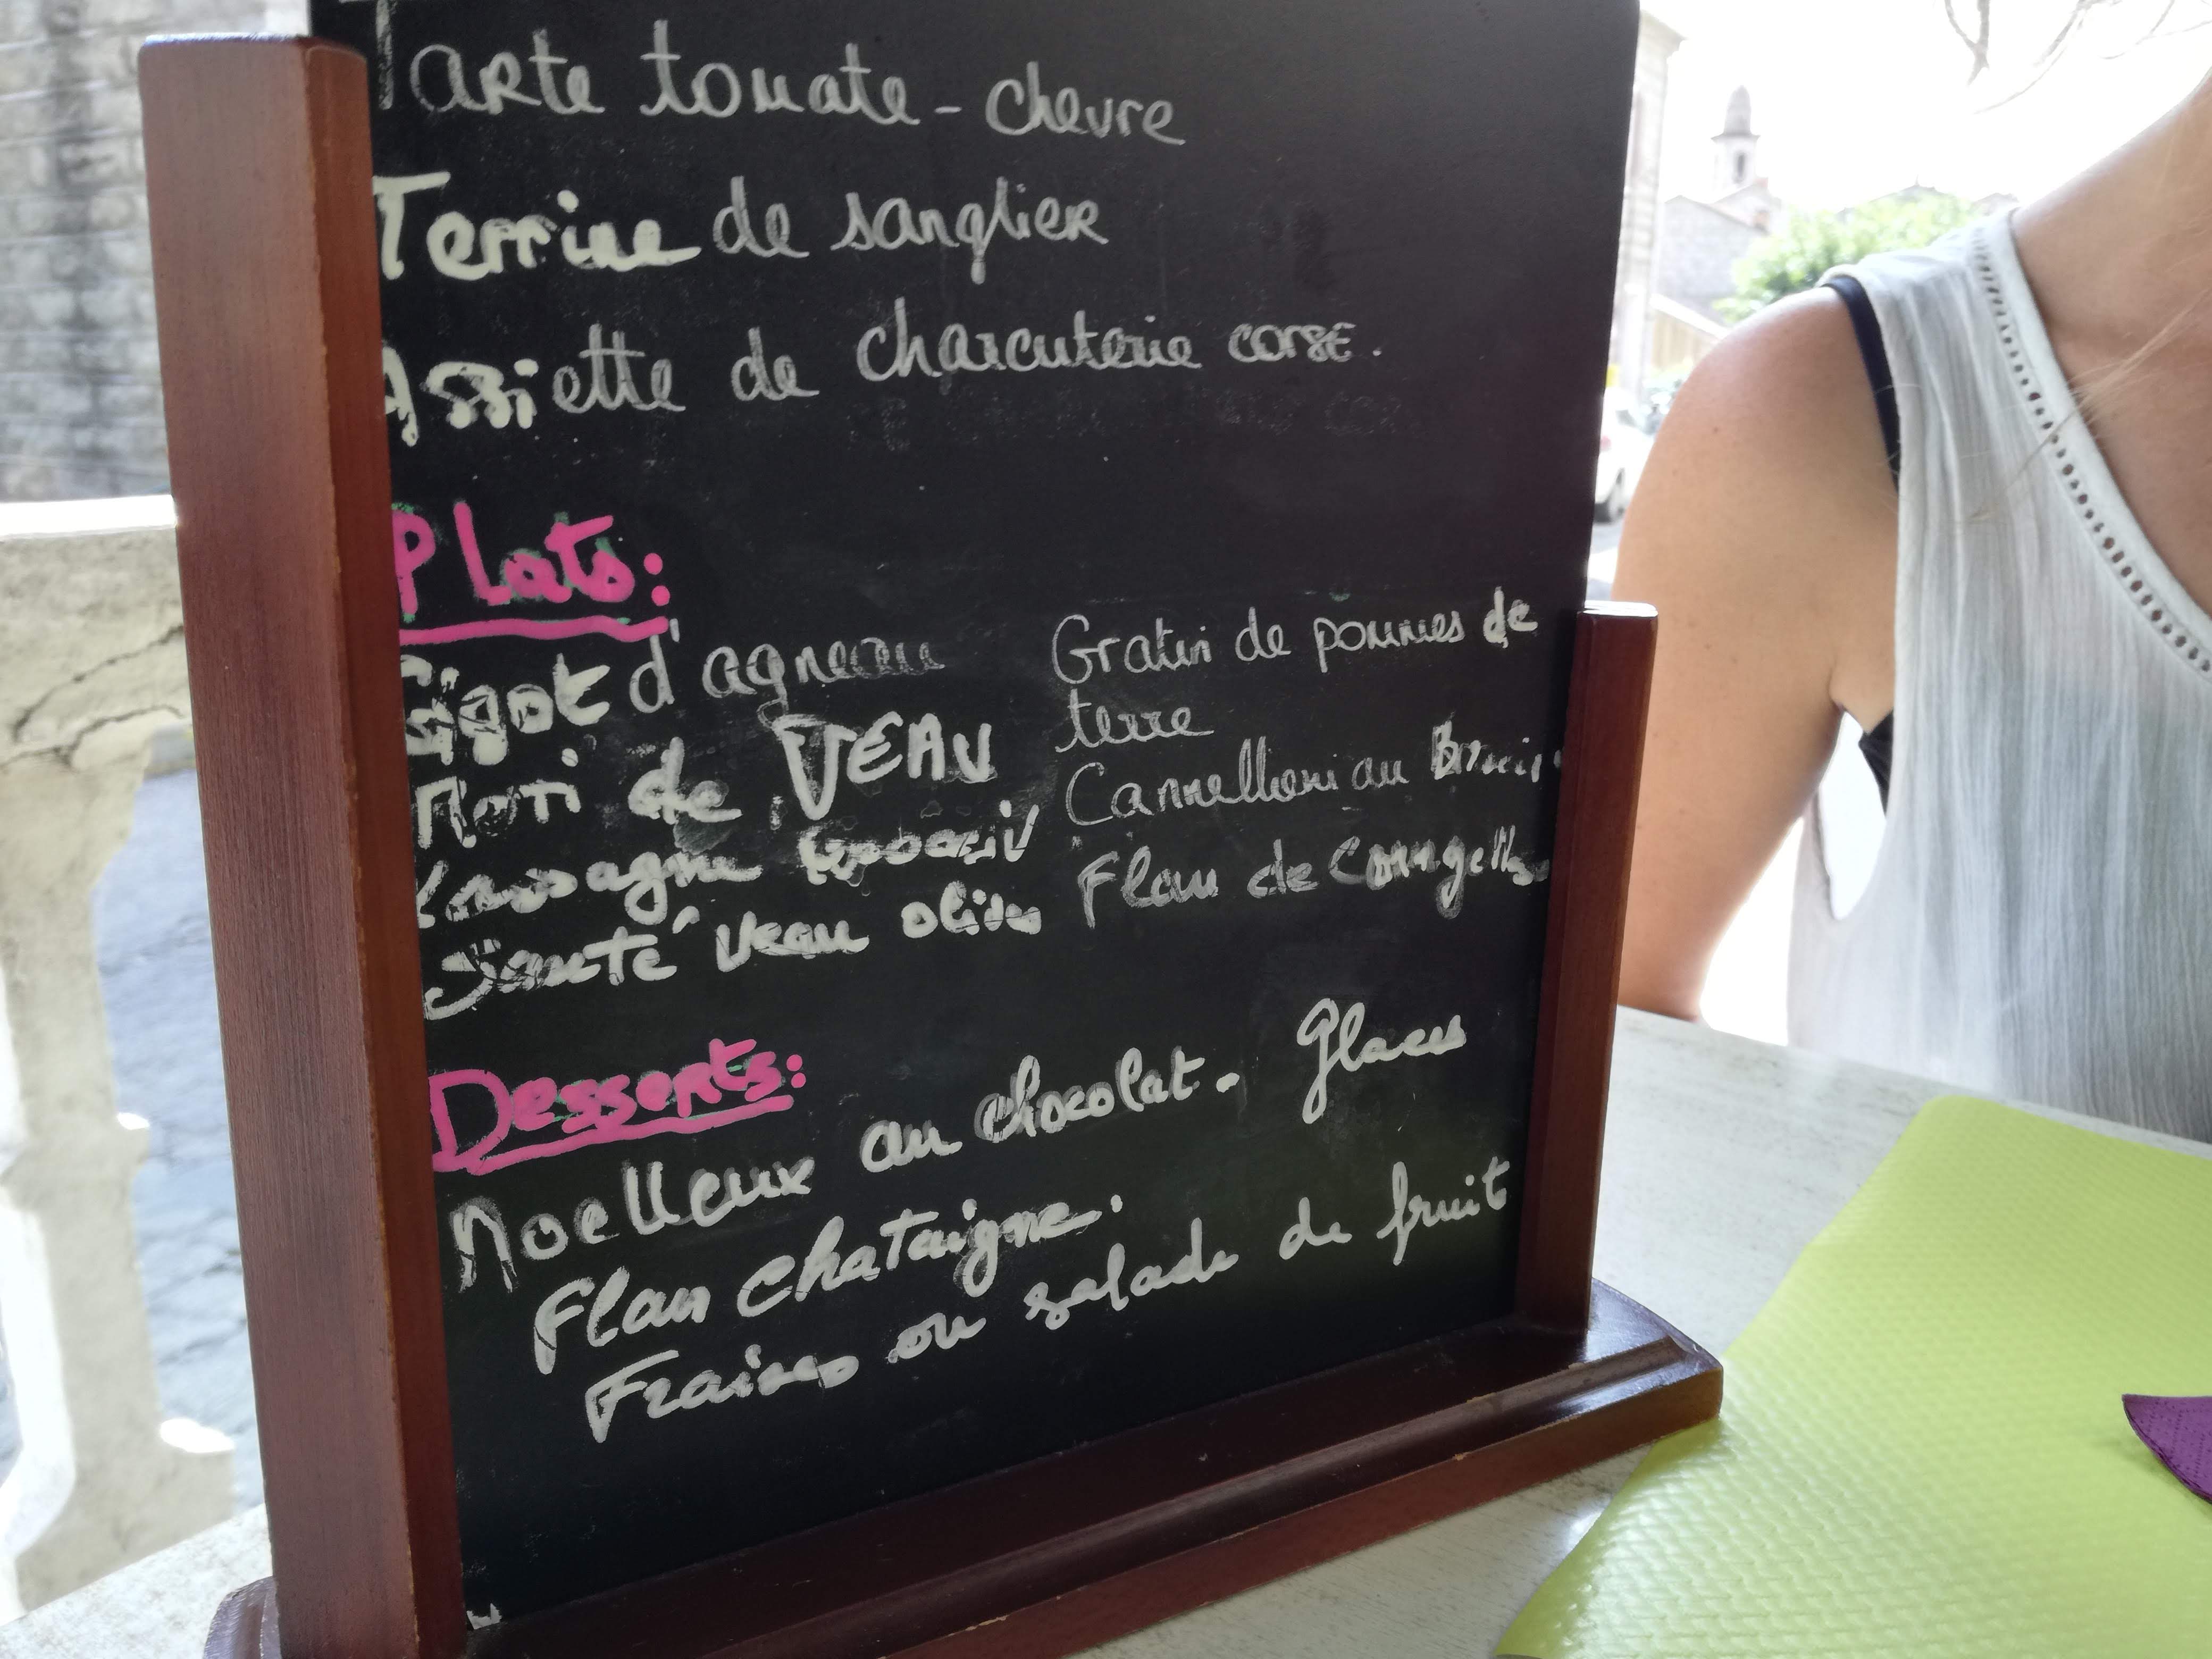 Tarte tomate - chevre
Terrine de sanglier
Assiette de charcuterie corse.
Plats:
Gigot d'agneau
Roti de VEAU
Lassagne
Sauté Veau olives
Gratin de pommes de
terre
Cannelloni au Brocciu
Flan de Courgettes
Desserts:
Moelleux au chocolat. Glaces
Flan chataigne.
Fraises ou salade de fruit